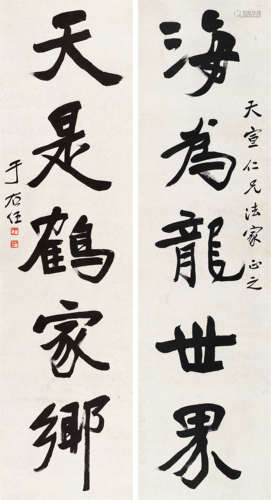 天宣仁兄法家正之
海為龍世界
天是鶴家鄉
于右任